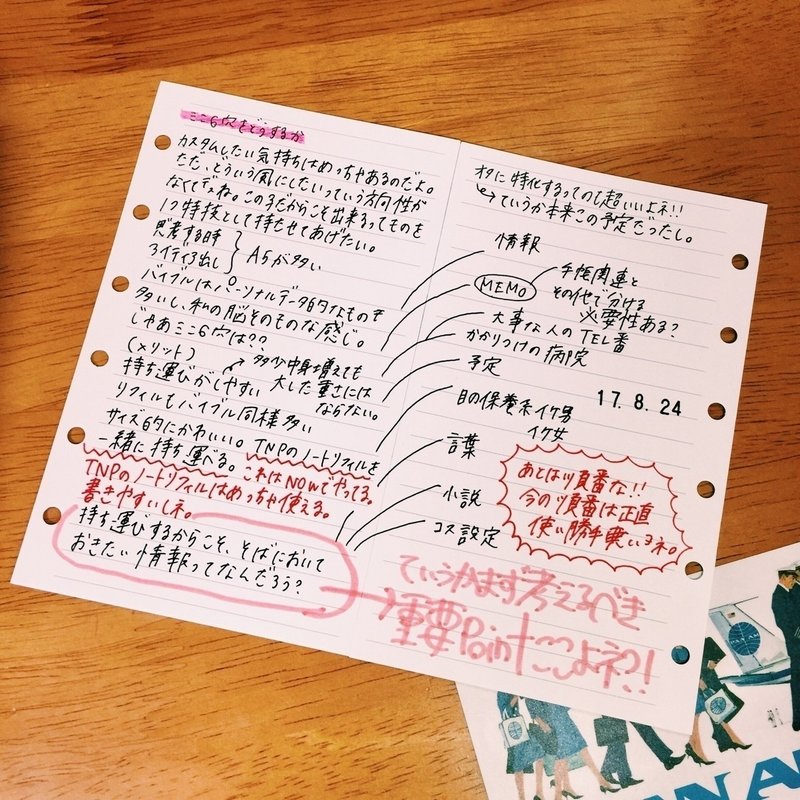 ミニ6穴をどうするか
カスタムしたい気持ちはめっちゃあるのだよ。
ただ、どういう風にしたいっていう方向性が
なくてですね。この子だからこそ出来るってものを
1つ特技として持たせてあげたい。
思考する時
3イテイ3出し A5が多い
バイブルはパーソナルデータ的なものを
多いし、私の脳そのものな感じ。
じゃあミニ6穴は??
(メリット)
多少中身増えても
持ち運びがしやすい
大した重さには
ならない。
リフィルもバイブル同様多い
サイズ的にかわいい。TNPのノートリフィルを
一緒に持ち運べる。これはNOWでやってる。
TNPのノートリフィルはめっちゃ使える。
書きやすいしネ。
持ち運びするからこそ、そばにおいて
おきたい情報ってなんだろう?
オタに特化するってのも超いいよネ!!
ていうか本来この予定だったし。
情報
MEMO
手帳関連と
その他で分ける
必要性ある?
大事な人のTEL番
かかりつけの病院
予定
17.8.24
目の保養系イケ男
イケ女
言葉
小説
コス設定
あとは順番な!!
今の順番は正直
使い勝手悪いヨネ。
ていうかまず考えるべき
重要Pointここよネ?!
PAN AM